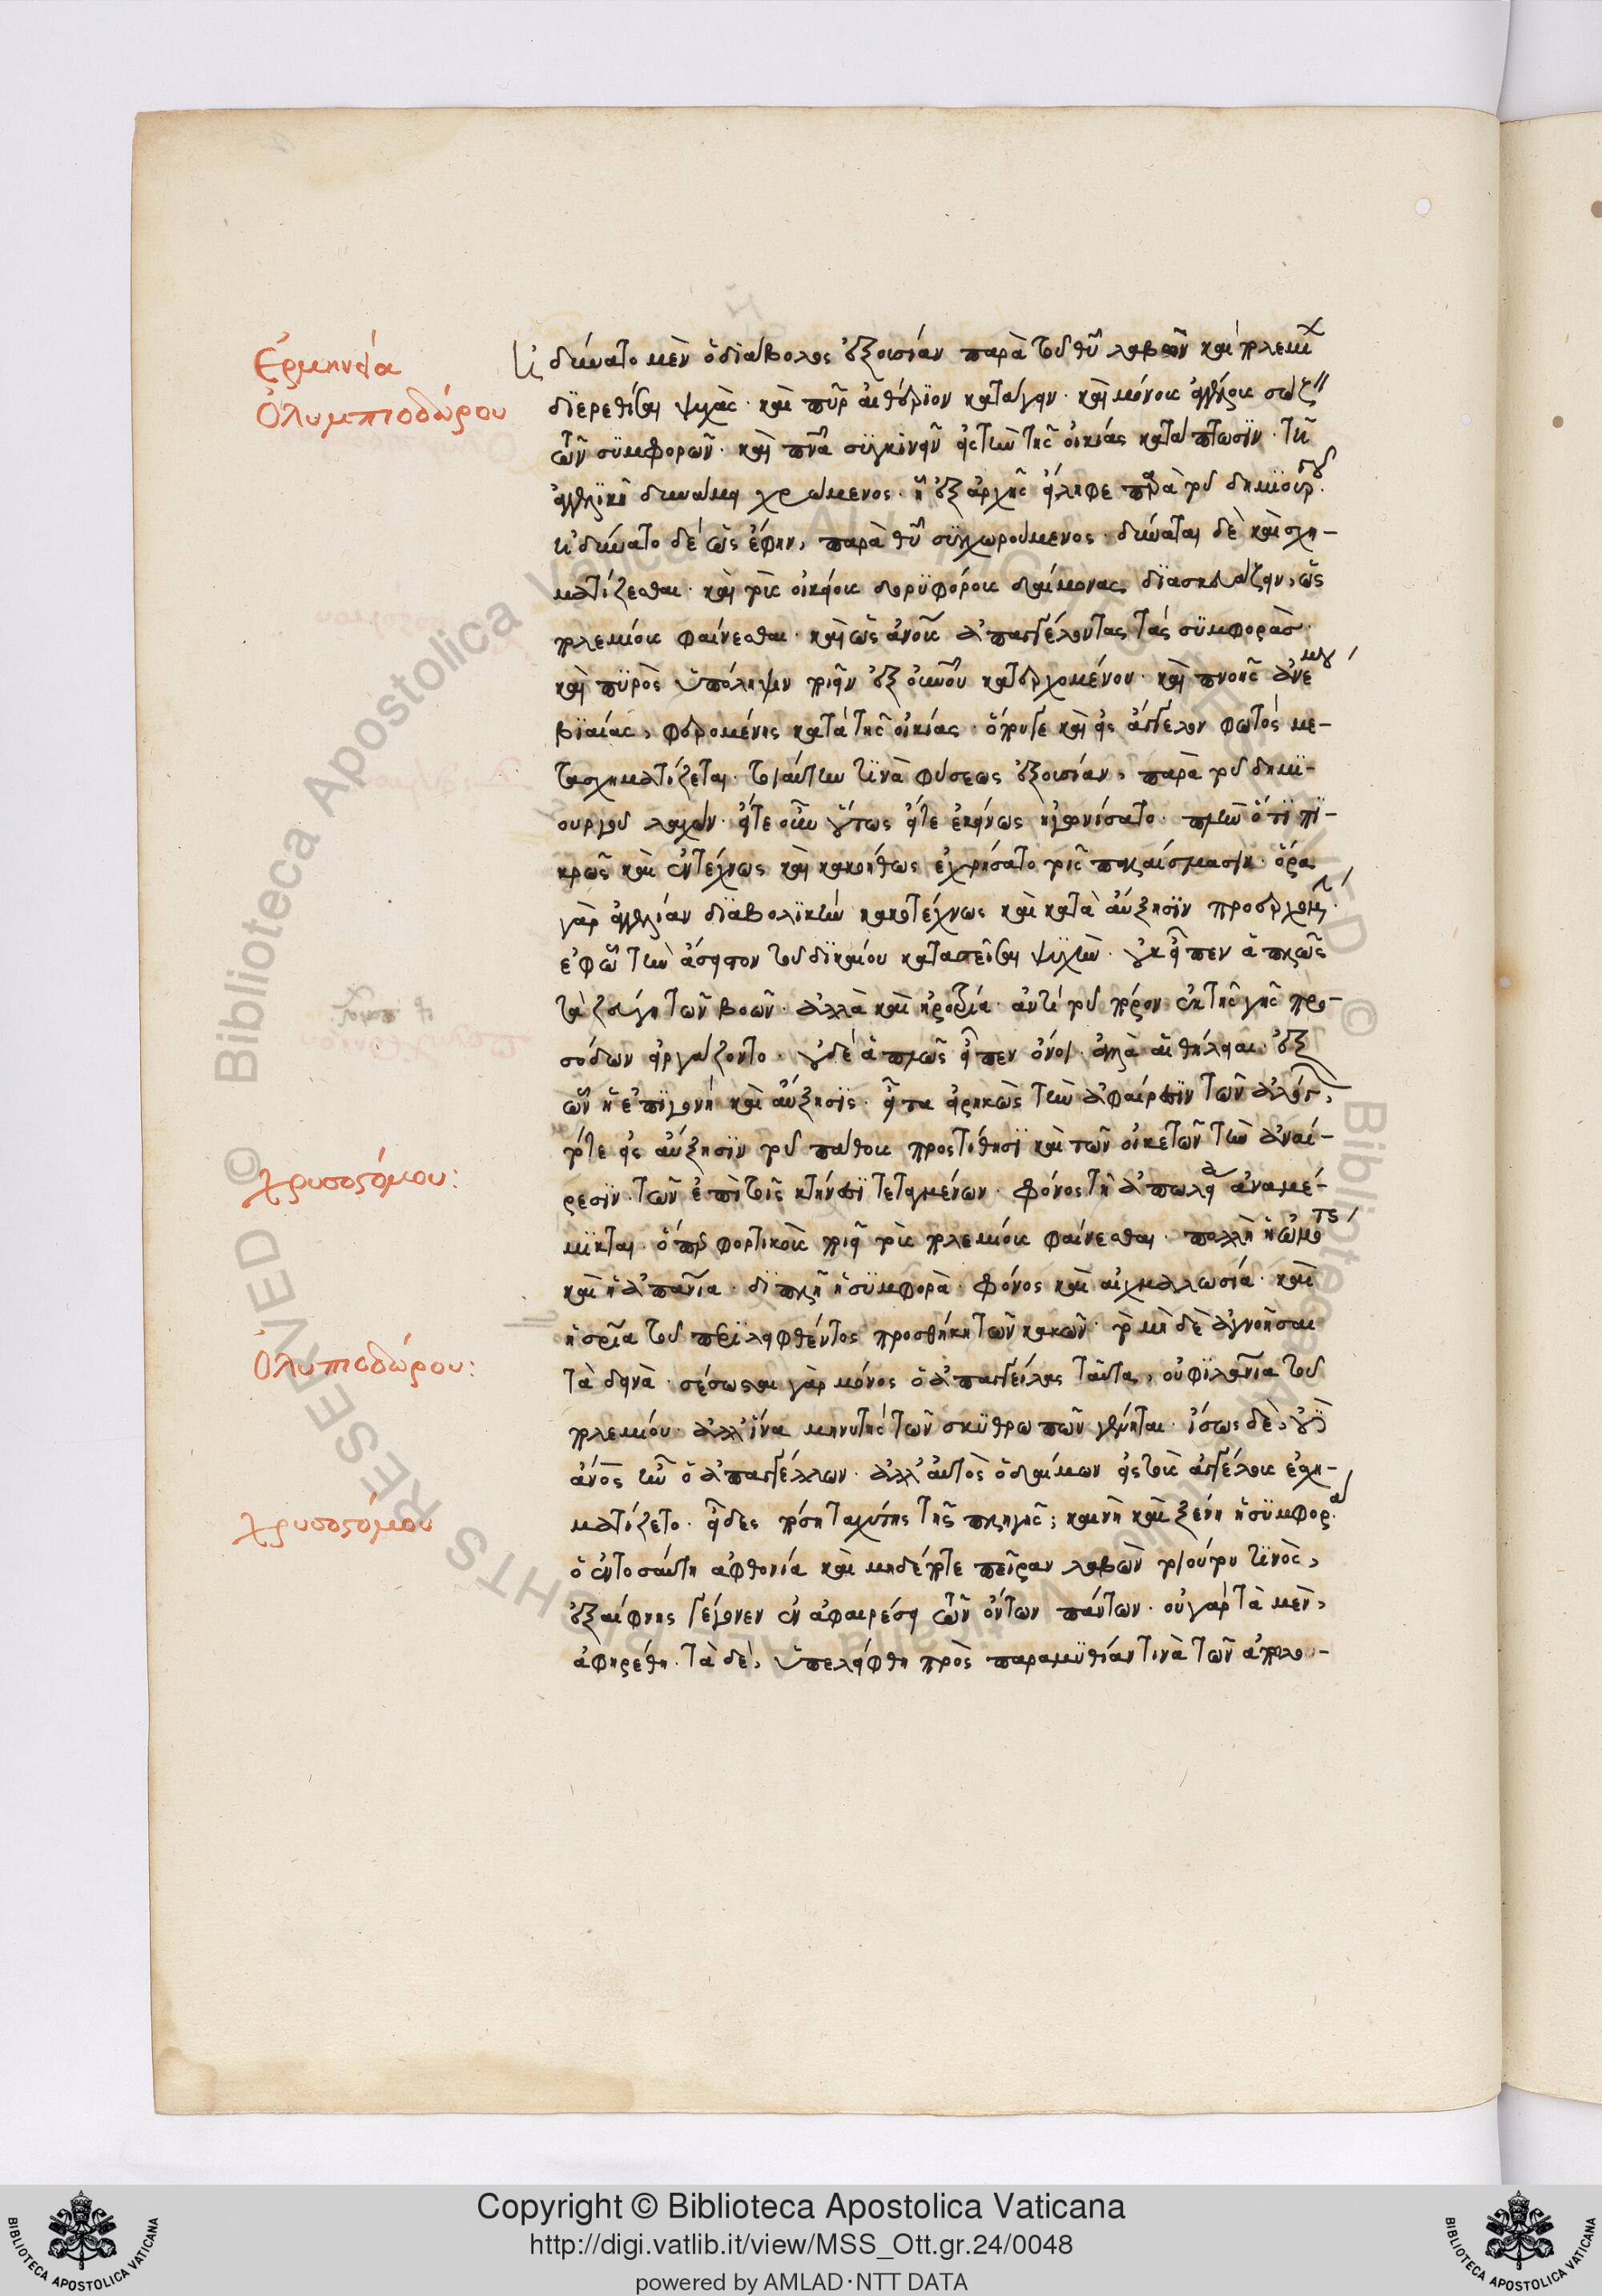 Ἑρμηνεία
Ὀλυμπιοδώρου
Ἠδύνατο μὲν ὁ διάβολος ἐξουσίαν παρὰ τοῦ θῦ λαβὼν καὶ πολεμι
διερεθίσαι ψυχὰς· καὶ πῦρ αἰθέριον κατάγειν· καὶ μόνοις ἀγγέλοις
τῶν συμφορῶν· καὶ πνα συγκινεῖν εἰς τὴν τῆς οἰκίας κατάπτωσιν· τῆ
ἀγγελικῆ δυνάμει χρώμενος· ἣ ἐξ ἀρχῆς εἴληφε παρὰ τοῦ δημιουργοῦ·
ἠδύνατο δὲ ὡς ἔφην, παρὰ θῦ συγχωρούμενος· δύναται δὲ καὶ σχη-
ματίζεσθαι· καὶ τοὺς οἰκείους δορυφόρους δαίμονας διασκευάζειν, ὡς
πολεμίους φαίνεσθαι· καὶ ὡς ἀνους ἀπαγγέλοντας τὰς συμφορὰς·
καὶ πυρὸς ὑπόληψιν ποιεῖν ἐξ οὐνοῦ κατερχομένου· καὶ πνοῆς ἀνέμου
βιαίας, φερομένης κατὰ τῆς οἰκίας· ὅπουγε καὶ εἰς ἄγγελον φωτὸς με-
τασχηματίζεται· τοιαύτην τινὰ φύσεως ἐξουσίαν, παρὰ τοῦ δημι-
ουργοῦ λαχών· εἴτε οὖν οὕτως εἴτε ἐκείνως ἠγωνίσατο· πλὴν ὅτι πι-
κρῶς καὶ ἐντέχνως καὶ κακοήθως ἐχρήσατο τοῖς παλαίσμασιν· ὅρα
γὰρ ἀγγελίαν διαβολικὴν κακοτέχνως καὶ κατὰ αὔξησιν
ἐφ ὧ τὴν ἄσειστον τοῦ δικαίου κατασεῖσαι ψυχὴν· οὐκ εἶπεν ἁπλῶς
τὰ ζεύγη τῶν βοῶν· ἀλλὰ καὶ ἠροτρία· ἀντὶ τοῦ πόρον ἐκ τῆς γῆς προ-
σόδων εἰργάζοντο· οὐδὲ ἁπλῶς εἶπεν ὄνοι· ἀλλὰ αἱ θήλειαι· ἐξ
ὧν ἡ ἐπιγονὴ καὶ αὔξησις· εἶτα εἰρηκὼς τὴν ἀφαίρεσιν τῶν ἀλόγ,
τότε εἰς αὔξησιν τοῦ πάθους προστίθησι καὶ τῶν οἰκετῶν τὴν ἀναί-
χρυσοστόμου:
ρεσιν· τῶν ἐπὶ τοῖς κτήνεσι τεταγμένων· φόνος τῆ ἀπωλεία ἀναμέ-
μικται· ὅπερ φορτικοὺς ποιεῖ τοὺς πολεμίους φαίνεσθαι· πολλὴ ἡ ὠμότης
καὶ ἡ ἀπανία· διπλῆ ἡ συμφορὰ· φόνος καὶ αἰχμαλωσία· καὶ
ἡ σρία τοῦ περιλειφθέντος προσθήκη τῶν κακῶν· τὸ μὴ δὲ ἀγνοῆσαι
Ὀλυπιοδώρου:
τὰ δεινὰ· σέσωσται γὰρ μόνος ὁ ἀπαγγείλας ταῦτα, οὐ φιλανία τοῦ
πολεμίου· ἀλλ ἵνα μηνυτὴς τῶν σκυθρωπῶν γένηται· ἴσως δὲ, οὐδ
ἀνος ἦν ὁ ἀπαγγέλλων· ἀλλ αὐτὸς ὁ δαίμων εἰς τοὺς ἀγγέλους ἐσχη-
χρυσοστόμου
ματίζετο· εἶδες πόση ταχύτης τῆς πληγῆς; καινὴ καὶ ξένη ἡ συμφορά·
ὁ ἐν τοσαύτη ἀφθονία καὶ μηδέποτε πεῖραν λαβὼν τοιούτου τινὸς,
ἐξαίφνης γέγονεν ἐν ἀφαιρέσει τῶν ὄντων πάντων· οὐ γὰρ τὰ μὲν,
ἀφηρέθη· τὰ δὲ, ὑπελείφθη πρὸς παραμυθίαν τινὰ τῶν ἀπολου-
Copyright © Biblioteca Apostolica Vaticana
http://digi.vatlib.it/view/MSS_Ott.gr.24/0048
powered by AMLAD·NTT DATA